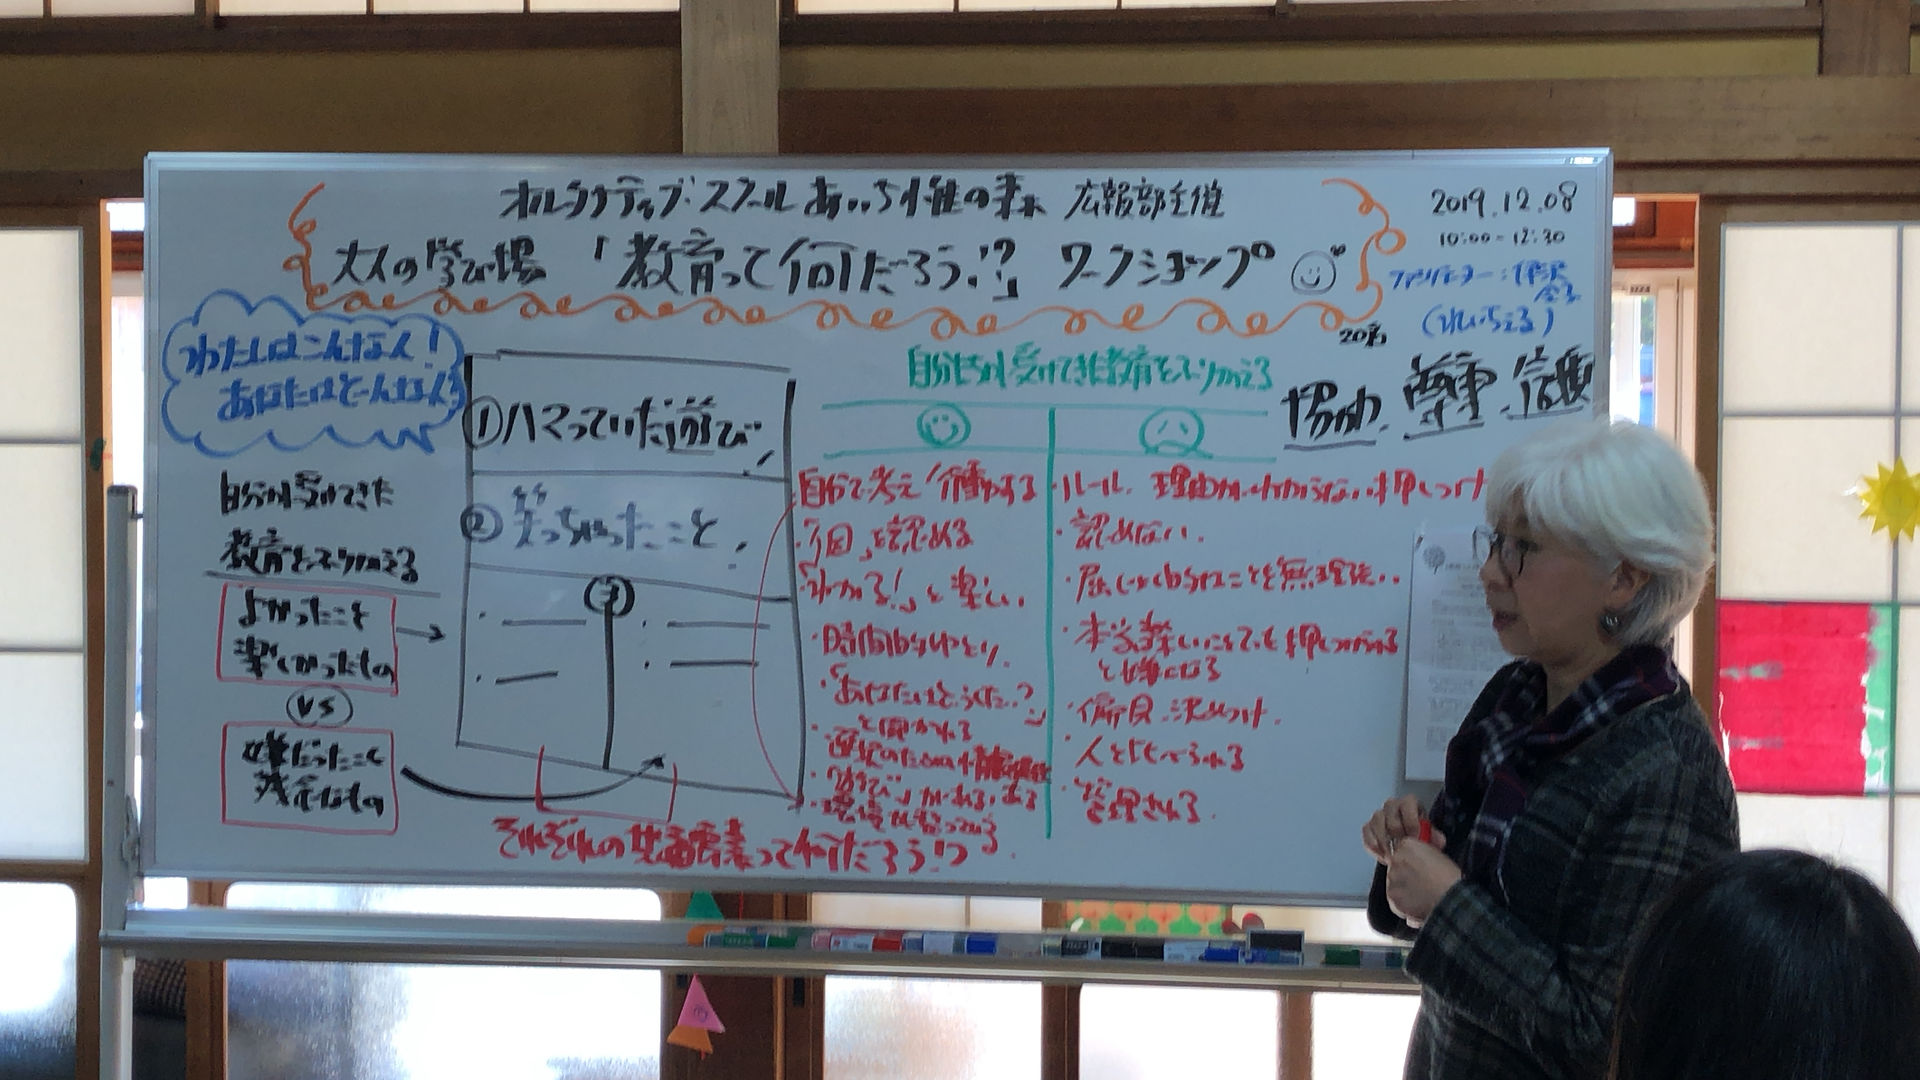 オルタナティブ・スクール あいち惟の森 広報部主催
大人の学び場 「教育って何だろう!?」 ワークショップ
2019.12.08
10:00-12:30
ファシリテーター:
(れいちぇる)
わたしはこんな人!
あなたはどーんな人?
自分が受けてきた
教育をふりかえる
よかったこと
楽しかったもの
VS
嫌だったこと
残念なもの
①ハマっていた遊び
②笑っちゃったこと
③
それぞれの共通要素って何だろう!?
自分たちが受けてきた教育をふりかえる
協力 尊重 信頼
自分で考え行動する
個を認める
「わかる!」と楽しい
・時間的ゆとり
・「あなたはどうしたい?」
と聞かれる
・選択のための情報提供
・「遊び」がある
・環境が整っている
・ルール 理由がわからない押しつけ
・認めない
・本当は楽しいことでも押しつけられる
と嫌になる
・偏見 決めつけ
・人と比べられる
・管理される